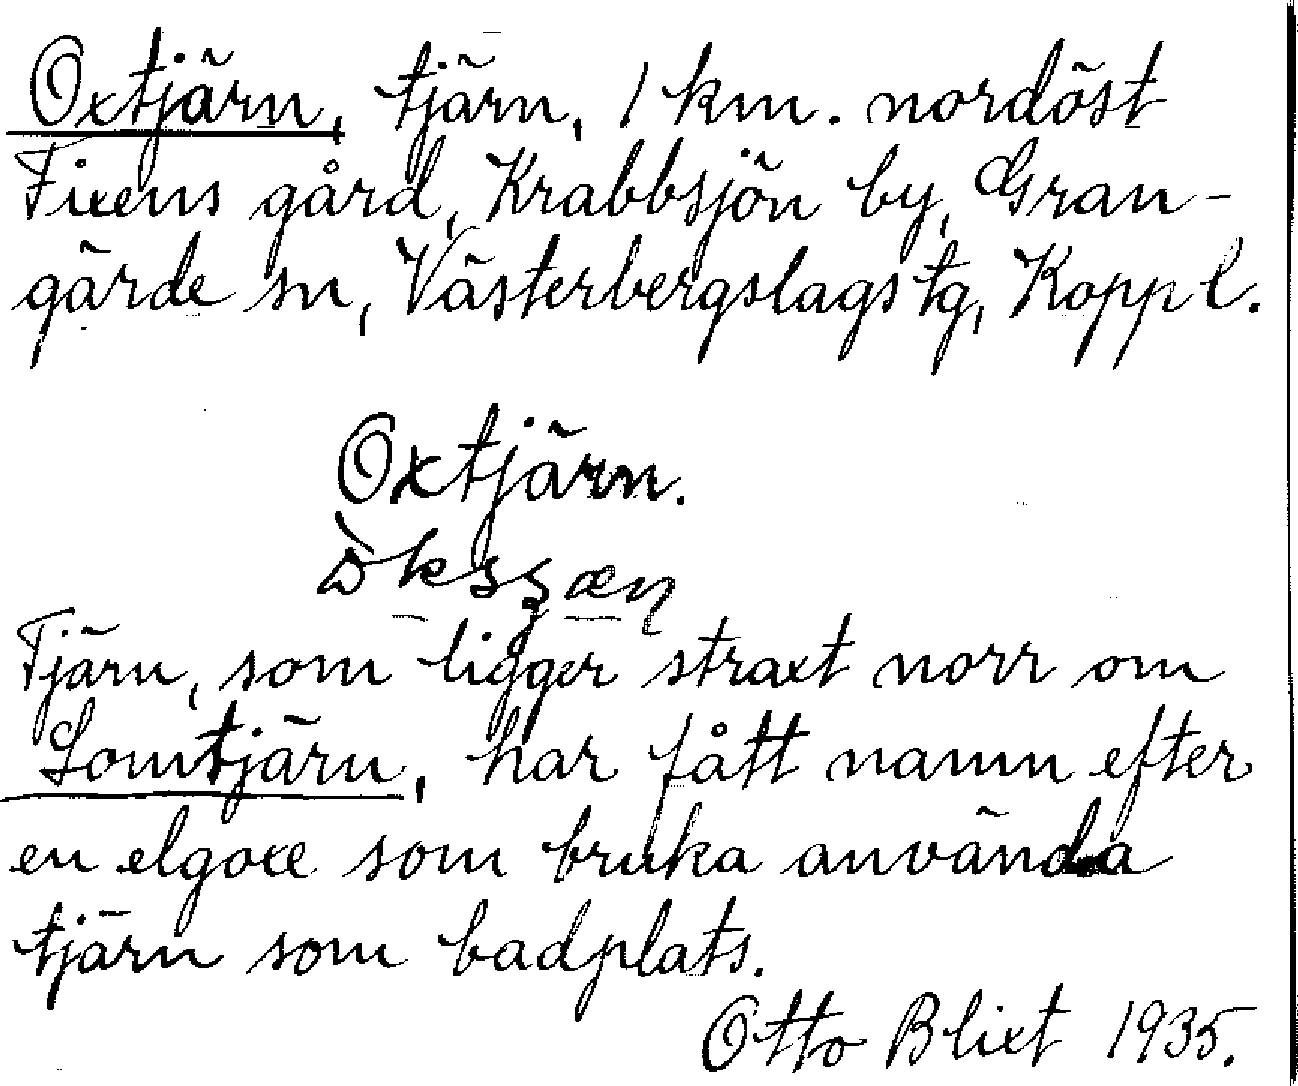 Oxtjärn, tjärn, 1 km. nordöst
Fixens gård, Krabbsjön by, Gran-
gärde sn, Västerbergslags tg, Koppl.
Oxtjärn.
Tjärn, som ligger straxt norr om
Lomtjärn, har fått namn efter
en elgoxe som bruka använda
tjärn som badplats.
Otto Blixt 1935.